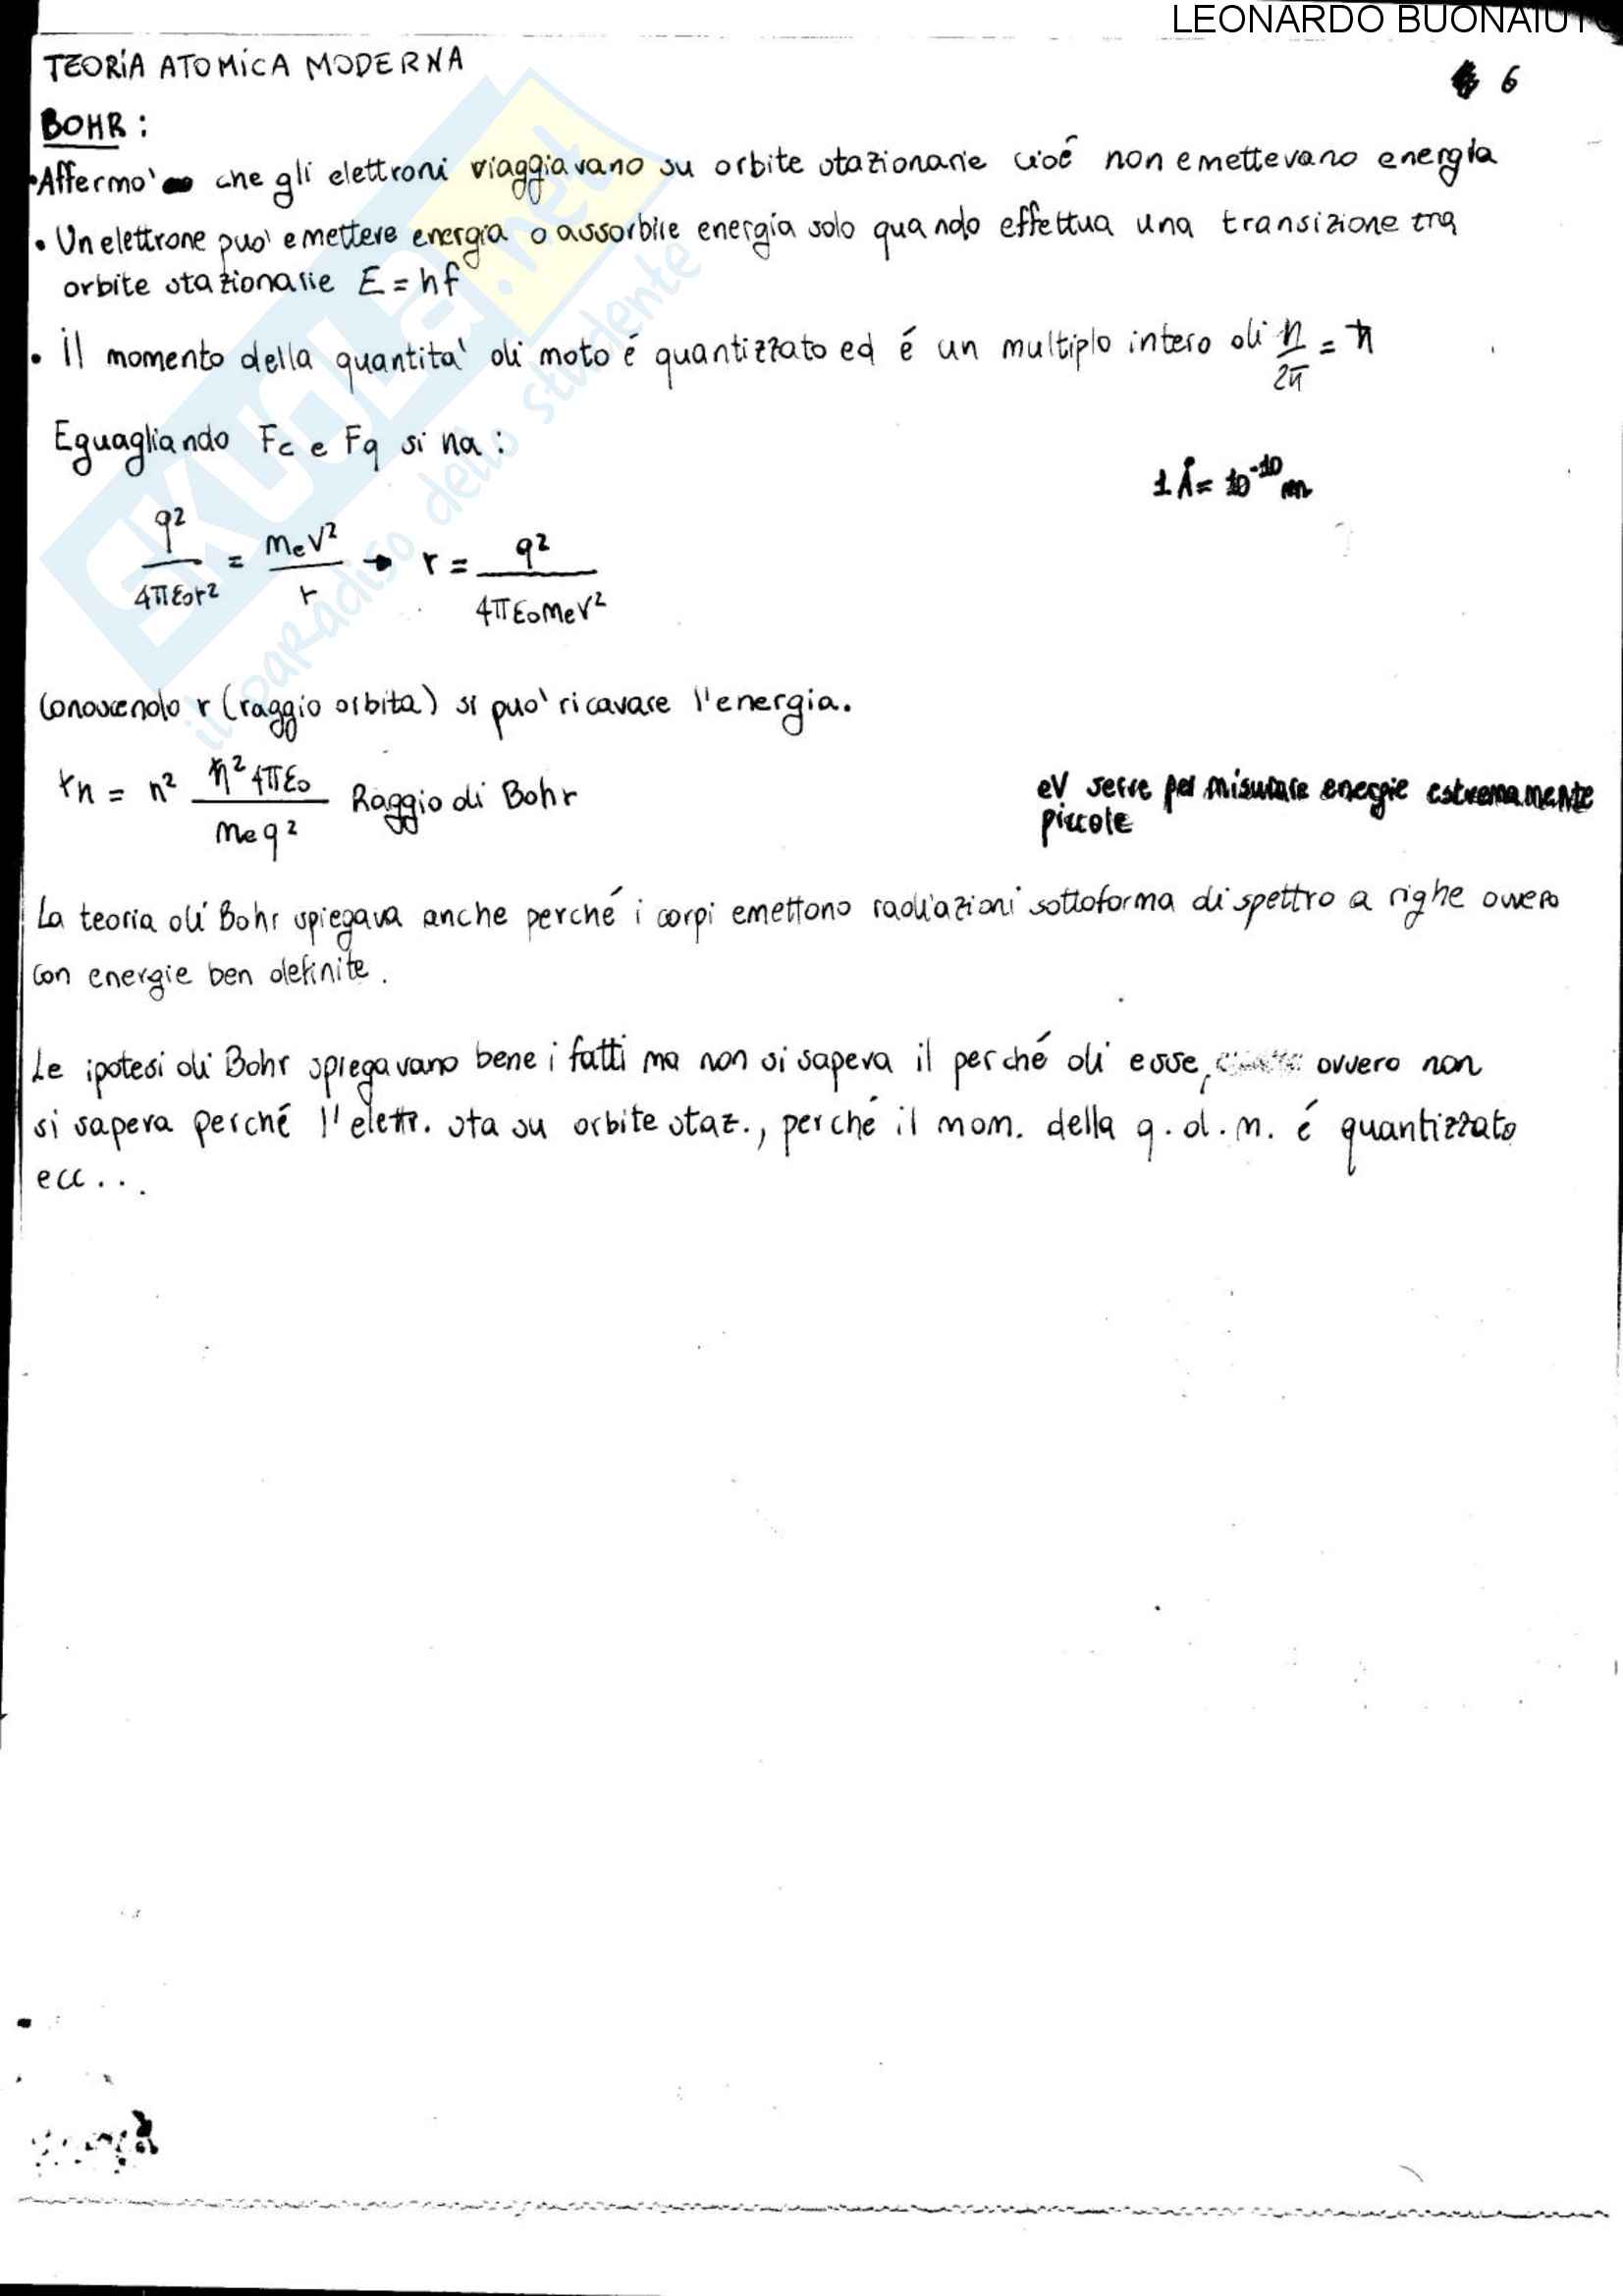 LEONARDO BUONAIUTO
TEORIA ATOMICA MODERNA
6
BOHR:
• Affermo' che gli elettroni viaggiavano su orbite stazionarie cioé non emettevano energia
• Un elettrone puo' emettere energia o assorbire energia solo quando effettua una transizione tra
orbite stazionarie E = hf
• Il momento della quantita' di moto é quantizzato ed é un multiplo intero di h/2π = ħ
Eguagliando Fc e Fq si ha:
1 Å = 10^-10 m
q²/4πε0r² = meV²/r → r = q²/4πε0meV²
Conoscendo r (raggio orbita) si puo' ricavare l'energia.
rn = n² ħ²4πε0/meq² Raggio di Bohr
eV serve per misurare energie estremamente
piccole
La teoria di Bohr spiegava anche perché i corpi emettono radiazioni sottoforma di spettro a righe ovvero
con energie ben definite.
Le ipotesi di Bohr spiegavano bene i fatti ma non si sapeva il perché di esse, ovvero non
si sapeva perché l'elettr. sta su orbite staz., perché il mom. della q.d.m. é quantizzato
ecc...
SKUOLA.net
il paradiso dello studente